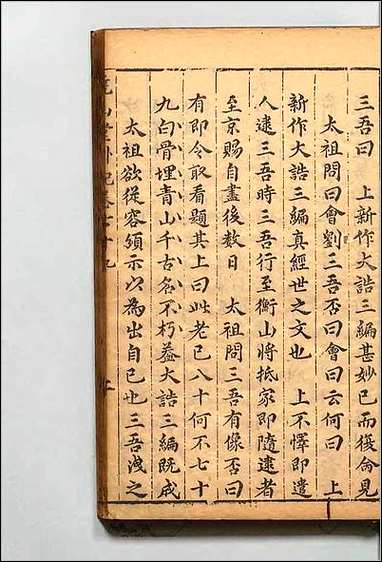 三吾曰　上新作大誥三編甚妙已而復命見
太祖問曰會劉三吾否曰會曰云何曰　上
新作大誥三編真經世之文也　上不懌即遣
人逮三吾時三吾行至衡山將抵家即隨逮者
至京賜自盡後數日　太祖問三吾有像否曰
有即令取看題其上曰此老已八十何不七十
九白骨埋青山千古名不朽蓋大誥三編既成
太祖欲從容頒示以為出自己也三吾洩之
堯山堂外紀卷七十九